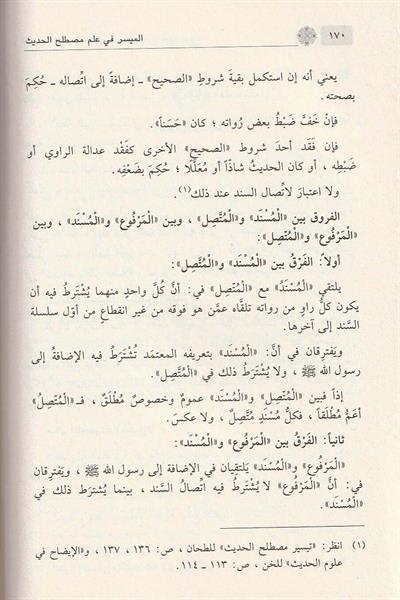 ١٧٠ الميسر في علم مصطلح الحديث
يعني أنه إن استكمل بقية شروطِ «الصحيح» ـ إضافةً إلى اتِّصاله ـ حُكِمَ
بصحته.
فإنْ خَفَّ ضَبْطُ بعض رُواته ؛ كان «حَسَناً».
فإن فَقَد أحدَ شروط «الصحيح» الأخرى كفَقْد عدالة الراوي أو
ضَبْطِه ، أو كان الحديثُ شاذّاً أو مُعَلَّلًا ؛ حُكِمَ بضَعْفِه.
ولا اعتبارَ لاتِّصال السند عند ذلك(١).
الفروق بين «الْمُسْنَد» و«الْمُتَّصِل» ، وبين «الْمَرْفُوع» و«الْمُسْنَد» ، وبين
«الْمَرْفُوع» و«الْمُتَّصِل»:
أولاً: الفَرْقُ بين «الْمُسْنَد» و«الْمُتَّصِل»:
يلتقي «الْمُسْنَدُ» مع «الْمُتَّصِل» في: أنَّ كُلَّ واحدٍ منهما يُشْتَرطُ فيه أن
يكون كلُّ راوٍ من رواته تلقَّاه عمَّن هو فوقه من غير انقطاعٍ من أوّل سلسلة
السَّند إلى آخرها.
ويَفترِقان في أنَّ: «الْمُسْنَد» بتعريفه المعتمَد تُشْتَرطُ فيه الإضافةُ إلى
رسول الله ﷺ ، ولا يُشْتَرطُ ذلك في «الْمُتَّصِل».
إذاً فبين «الْمُتَّصِل» و«الْمُسْنَد» عمومٌ وخصوصٌ مطْلَقٌ ، فـ«الْمُتَّصِلُ»
أعَمُّ مُطْلَقاً ، فكلُّ مُسْنَدٍ مُتَّصِلٌ ، ولا عكسَ.
ثانياً: الفَرْقُ بين «الْمَرْفُوع» و«الْمُسْنَد»:
«الْمَرْفُوعُ» و«الْمُسْنَد» يلتقيان في الإضافة إلى رسول الله ﷺ ، ويَفترِقان
في: أنَّ «الْمَرْفُوع» لا يُشْتَرطُ فيه اتِّصالُ السَّند ، بينما يُشترَط ذلك في
«الْمُسْنَد».
(١) انظر: «تيسير مصطلح الحديث» للطحان ، ص: ١٣٦ ، ١٣٧ ، و«الإيضاح في
علوم الحديث» للخن ، ص: ١١٣ ـ ١١٤.